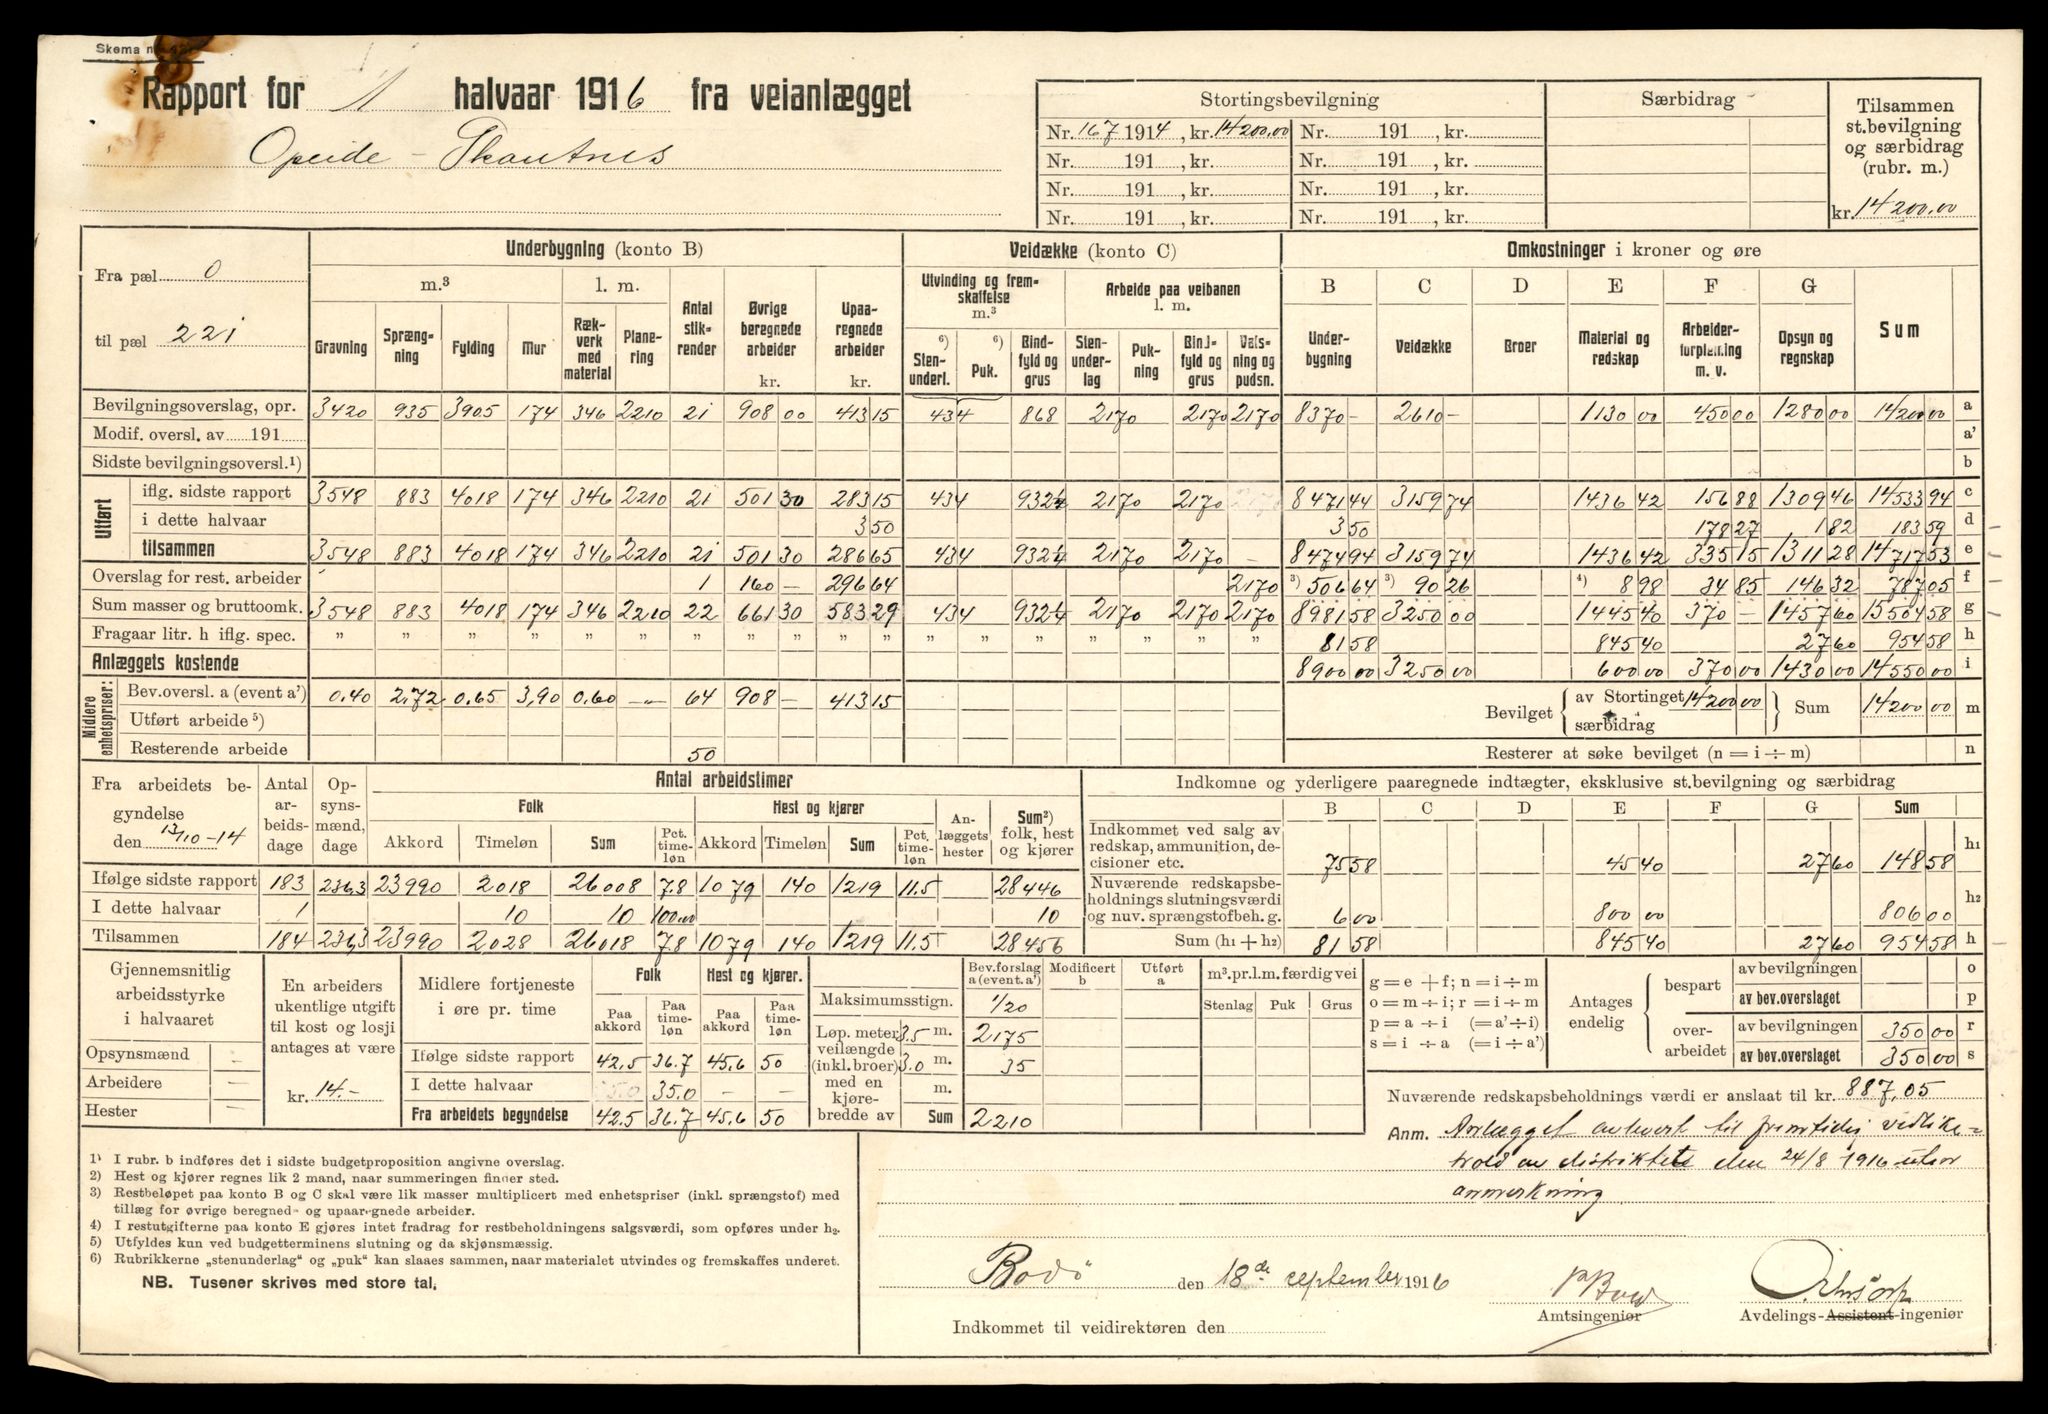 Rapport for 1 halvaar 1916 fra veianlægget
Opeide - Skautnes
Stortingsbevilgning Særbidrag Tilsammen st.bevilgning og særbidrag (rubr. m.)
Nr. 167 1914, kr. 14200.00 Nr. 191 , kr.
Nr. 191 , kr. Nr. 191 , kr.
Nr. 191 , kr. Nr. 191 , kr.
Nr. 191 , kr. Nr. 191 , kr. kr. 14200.00
Fra pæl 0
til pæl 221
Underbygning (konto B) Veidække (konto C) Omkostninger i kroner og øre
m.³ l. m. Antal stikrender Øvrige beregnede arbeider kr. Upaaregnede arbeider kr.
Gravning Sprængning Fylding Mur Rækverk med material Planering
Utvinding og fremskaffelse m.³ Arbeide paa veibanen l. m.
6) Stenunderl. 6) Puk. Bindfyld og grus Stenunderlag Pukning Bindfyld og grus Valsning og pudsn.
B C D E F G
Underbygning Veidække Broer Material og redskap Arbeiderforpleining m. v. Opsyn og regnskap Sum
Bevilgningsoverslag, opr. 3420 935 3905 174 346 2210 21 908 00 413 15 434 868 2170 2170 2170 8370 - 2610 - 1130 00 450 00 1280 00 14200 00 a
Modif. oversl. av 191 a'
Sidste bevilgningsoversl.1) b
Utført
iflg. sidste rapport 3548 883 4018 174 346 2210 21 501 30 283 15 434 932¼ 2170 2170 8471 44 3159 74 1436 42 156 88 1309 46 14533 94 c
i dette halvaar 3 50 3 50 178 27 1 82 183 59 d
tilsammen 3548 883 4018 174 346 2210 21 501 30 286 65 434 932¼ 2170 2170 - 8474 94 3159 74 1436 42 335 15 1311 28 14717 53 e
Overslag for rest. arbeider 1 160 - 296 64 2170 3) 506 64 3) 90 26 4) 8 98 34 85 146 32 787 05 f
Sum masser og bruttoomk. 3548 883 4018 174 346 2210 22 661 30 583 29 434 932¼ 2170 2170 2170 8981 58 3250 00 1445 40 370 - 1457 60 15504 58 g
Fragaar litr. h iflg. spec. " " " " " " " " " " " " " " " " " 81 58 845 40 27 60 954 58 h
Anlæggets kostende 8900 00 3250 00 600 00 370 00 1430 00 14550 00 i
Midlere enhetspriser:
Bev.oversl. a (event a') 0.40 2.72 0.65 3,90 0.60 -"- 64 908 - 413 15
Utført arbeide 5)
Resterende arbeide 50
Bevilget av Stortinget 14200 00 særbidrag Sum 14200 00 m
Resterer at søke bevilget (n = i ÷ m) n
Fra arbeidets begyndelse den 13/10-14
Antal arbeidsdage Opsynsmænd, dage Antal arbeidstimer
Folk Hest og kjører Anlæggets hester Sum2) folk, hest og kjører
Akkord Timeløn Sum Pct. timeløn Akkord Timeløn Sum Pct. timeløn
Ifølge sidste rapport 183 236,3 23990 2018 26008 7.8 1079 140 1219 11.5 28446
I dette halvaar 1 10 10 100.00 10
Tilsammen 184 236,3 23990 2028 26018 7.8 1079 140 1219 11.5 28456
Indkomne og yderligere paaregnede indtægter, eksklusive st.bevilgning og særbidrag
B C D E F G Sum
Indkommet ved salg av redskap, ammunition, decisioner etc. 75 58 45 40 27 60 148 58 h1
Nuværende redskapsbeholdnings slutningsværdi og nuv. sprængstofbeh. g. 6 00 800 00 806 00 h2
Sum (h1 + h2) 81 58 845 40 27 60 954 58 h
Gjennemsnitlig arbeidsstyrke i halvaaret
Opsynsmænd -
Arbeidere -
Hester -
En arbeiders ukentlige utgift til kost og losji antages at være
kr. 14.-
Midlere fortjeneste i øre pr. time
Folk Hest og kjører.
Paa akkord Paa timeløn Paa akkord Paa timeløn
Ifølge sidste rapport 42,5 36.7 45.6 50
I dette halvaar 35.0 - -
Fra arbeidets begyndelse 42.5 36.7 45.6 50
Bev.forslag a (event. a') Modificert b Utført a
Maksimumsstign. 1/20
Løp. meter veilængde (inkl. broer) med en kjørebredde av
3.5 m. 2175
3.0 m. 35
m.
Sum 2210
m³.pr.l.m. færdig vei
Stenlag Puk Grus
g = e + f; n = i ÷ m
o = m ÷ i; r = i ÷ m
p = a ÷ i (= a' ÷ i)
s = i ÷ a (= i ÷ a')
Antages endelig
bespart av bevilgningen o
av bev.overslaget p
overarbeidet av bevilgningen 350 00 r
av bev.overslaget 350 00 s
Nuværende redskapsbeholdnings værdi er anslaat til kr. 887,05
Anm. Anlægget avlevert til fremtidig vedlike-
hold av distriktets den 24/8 1916 uten
anmerkning
1) I rubr. b indføres det i sidste budgetproposition angivne overslag.
2) Hest og kjører regnes lik 2 mand, naar summeringen finder sted.
3) Restbeløpet paa konto B og C skal være lik masser multiplicert med enhetspriser (inkl. sprængstof) med
tillæg for øvrige beregnede og upaaregnede arbeider.
4) I restutgifterne paa konto E gjøres intet fradrag for restbeholdningens salgsværdi, som opføres under h2.
5) Utfyldes kun ved budgetterminens slutning og da skjønsmæssig.
6) Rubrikkerne „stenunderlag" og „puk" kan slaaes sammen, naar materialet utvindes og fremskaffes underet.
NB. Tusener skrives med store tal.
Bodø den 18de september 1916
Amtsingeniør Avdelings-Assistent-ingeniør
Indkommet til veidirektøren den